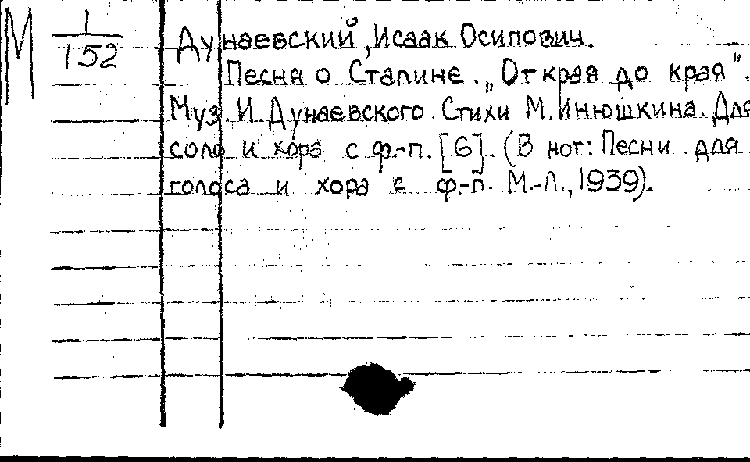 М 1/152
Дунаевский, Исаак Осипович.
Песня о Сталине. „От края до края".
Муз. И. Дунаевского. Стихи М. Инюшкина. Для
соло и хора с ф.-п. [6]. (В нот: Песни для
голоса и хора с ф.-п. М.-Л., 1939).